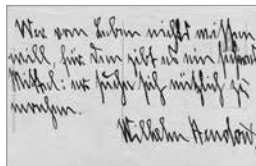 Wer vom Leben nichts wissen
will, für den gibt es ein
Mittel: er suche sich nützlich zu
machen.
Wilhelm